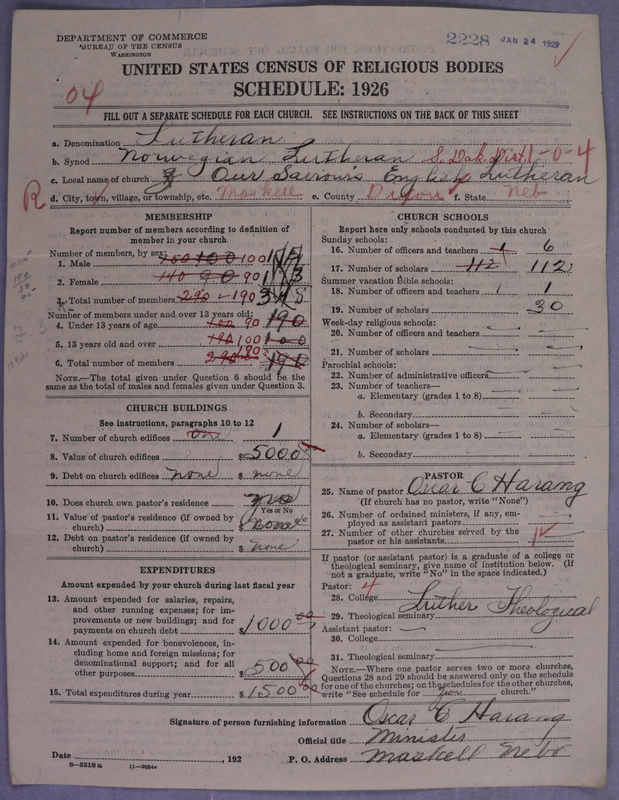 DEPARTMENT OF COMMERCE
BUREAU OF THE CENSUS
WASHINGTON
2228 JAN 24 1927
UNITED STATES CENSUS OF RELIGIOUS BODIES
SCHEDULE: 1926
04
FILL OUT A SEPARATE SCHEDULE FOR EACH CHURCH. SEE INSTRUCTIONS ON THE BACK OF THIS SHEET
a. Denomination Lutheran
b. Synod Norwegian Lutheran S. Dak. Dist. 1-0-4
c. Local name of church Our Saviours English Lutheran
R
d. City, town, village, or township, etc. Maskell e. County Dixon f. State Neb
MEMBERSHIP
Report number of members according to definition of
member in your church
Number of members, by sex:
1. Male 100 100
2. Female 110 90 90
3. Total number of members 290 190
Number of members under and over 13 years old:
4. Under 13 years of age 100 90 190
5. 13 years old and over 190 100 100
6. Total number of members 290 190 190
NOTE.—The total given under Question 6 should be the
same as the total of males and females given under Question 3.
CHURCH BUILDINGS
See instructions, paragraphs 10 to 12
7. Number of church edifices one 1
8. Value of church edifices $ 5000
9. Debt on church edifices none $ none
10. Does church own pastor's residence no
Yes or No
11. Value of pastor's residence (if owned by
church) $ none
12. Debt on pastor's residence (if owned by
church) $ none
EXPENDITURES
Amount expended by your church during last fiscal year
13. Amount expended for salaries, repairs,
and other running expenses; for im-
provements or new buildings; and for
payments on church debt $ 1000 00
14. Amount expended for benevolences, in-
cluding home and foreign missions; for
denominational support; and for all
other purposes $ 500 00
15. Total expenditures during year $ 1500 00
CHURCH SCHOOLS
Report here only schools conducted by this church
Sunday schools:
16. Number of officers and teachers 1 6
17. Number of scholars 112 112
Summer vacation Bible schools:
18. Number of officers and teachers 1 1
19. Number of scholars 30
Week-day religious schools:
20. Number of officers and teachers
21. Number of scholars
Parochial schools:
22. Number of administrative officers
23. Number of teachers—
a. Elementary (grades 1 to 8)
b. Secondary
24. Number of scholars—
a. Elementary (grades 1 to 8)
b. Secondary
PASTOR
25. Name of pastor Oscar C Harang
(If church has no pastor, write "None")
26. Number of ordained ministers, if any, em-
ployed as assistant pastors
27. Number of other churches served by the
pastor or his assistants
If pastor (or assistant pastor) is a graduate of a college or
theological seminary, give name of institution below. (If
not a graduate, write "No" in the space indicated.)
Pastor: 4
28. College
29. Theological seminary Luther Theological
Assistant pastor:
30. College
31. Theological seminary
NOTE.—Where one pastor serves two or more churches,
Questions 28 and 29 should be answered only on the schedule
for one of the churches; on the schedules for the other churches,
write "See schedule for church."
Signature of person furnishing information Oscar C Harang
Official title Minister
Date , 192 P. O. Address Maskell Nebr